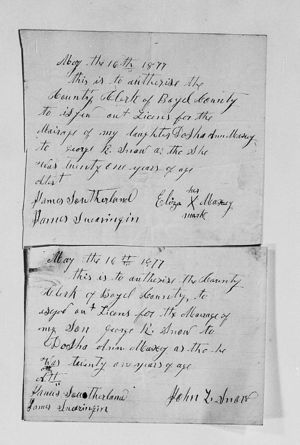 May the 16th 1877
this is to autherise the
County Clerk of Boyd County
to isseu out Licens for the
Mairage of my daughter Dosha Ann Maxey
to george k. Snow as the She
was twenty one years of age
attest
James Southerland
his
Eliza X Maxey
mark
James Swearingin
May the 16th 1877
this is to autherise the County
Clerk of Boyd County, to
isseu out Licens for the Marage of
my Son george k. Snow to
Dosha Ann Maxey as the he
was twenty one years of age
Att
James Southerland
John L. Snow
James Swearingin